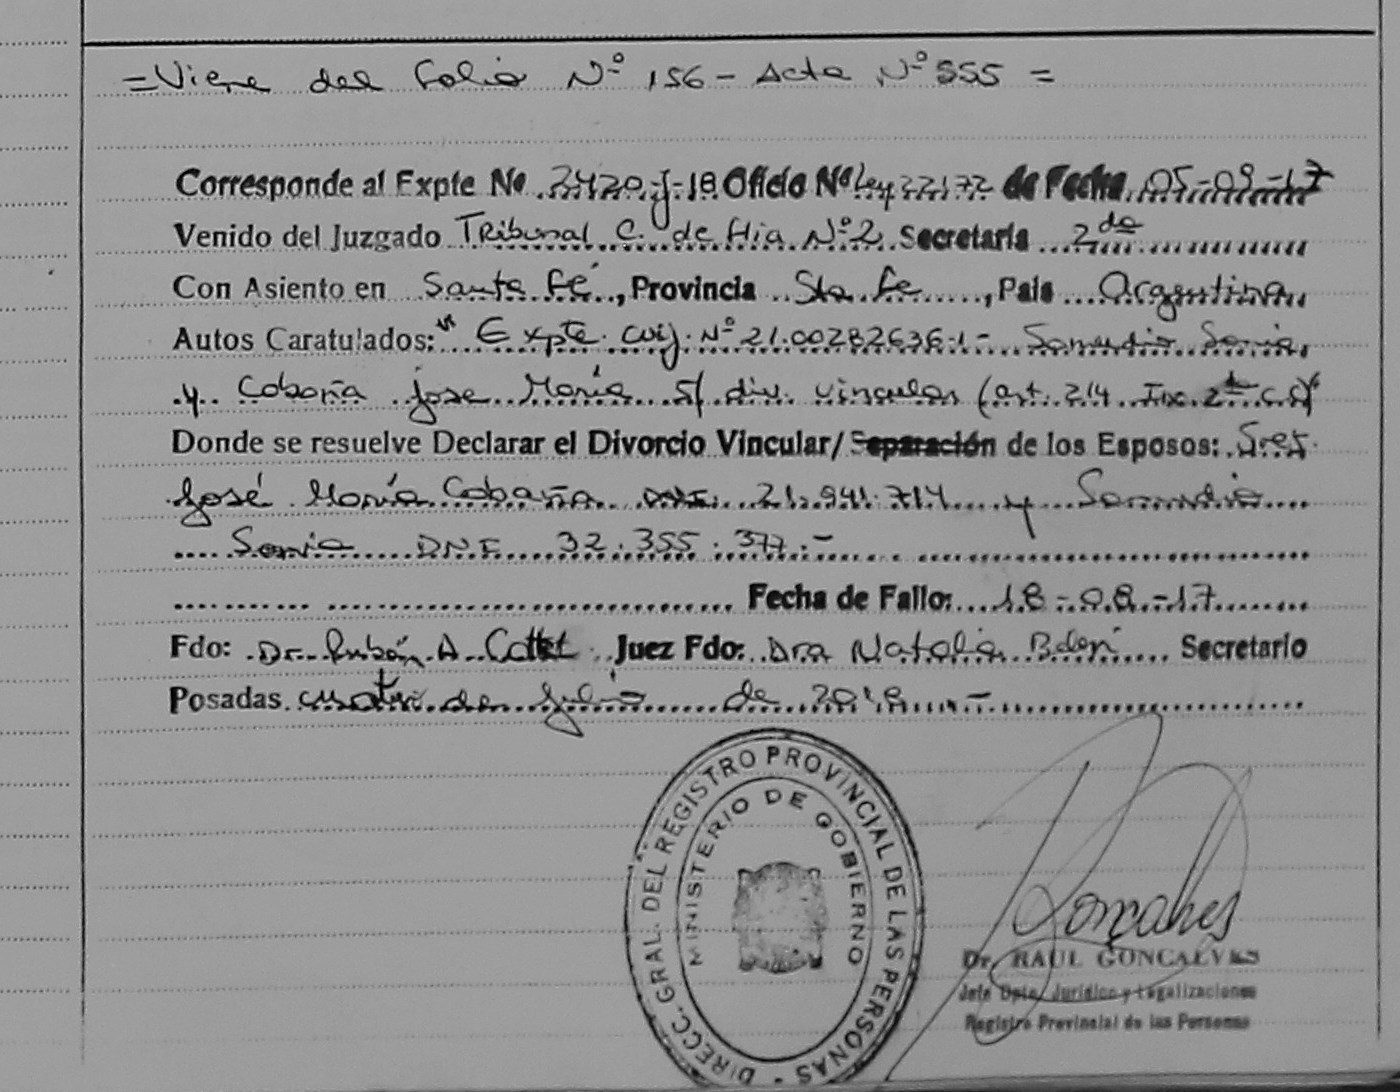 =Viene del Folio Nº 156 - Acta Nº 555 =
Corresponde al Expte Nº 2420-J-18 Oficio Nº Ley 22172 de Fecha 05-09-17
Venido del Juzgado Tribunal C. de Flia Nº 2 Secretaría 2da
Con Asiento en Santa Fé, Provincia Sta Fe, País Argentina
Autos Caratulados: "Expte Cuij Nº 21.00282636.1 - Samudio Sonia
y Cobaña Jose María s/ div. vincular (art. 214 Inc. 2do C.C)"
Donde se resuelve Declarar el Divorcio Vincular/ Separación de los Esposos: Sres.
José María Cobaña DNI. 21.941.714 y Samudio
Sonia DNI. 32.355.377.-
Fecha de Fallo: 18-08-17
Fdo: Dr. Rubén A. Cottet Juez Fdo: Dra Natalia Juez Secretario
Posadas cuatro de Julio de 2018.-
DIRECC. GRAL. DEL REGISTRO PROVINCIAL DE LAS PERSONAS -
MINISTERIO DE GOBIERNO
Dr. RAUL GONCALVES
Jefe Dpto. Jurídico y Legalizaciones
Registro Provincial de las Personas